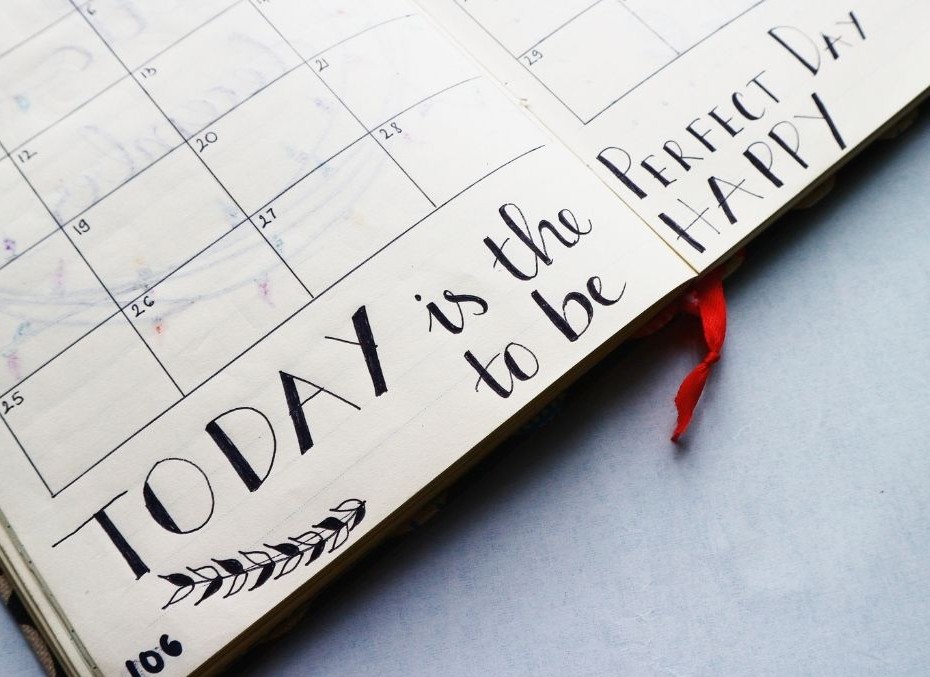 6
12 13
19 20 21
25 26 27 28
29
TODAY is the PERFECT DAY
to be HAPPY
106